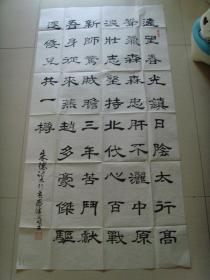 遠望春光鎮日陰太行高
聳氣森森忠肝不灑中原
淚壯志堅持北伐心百戰
新師驚賊膽三年苦鬥獻
吾身從來燕趙多豪傑驅
逐倭兒共一樽
朱德詩